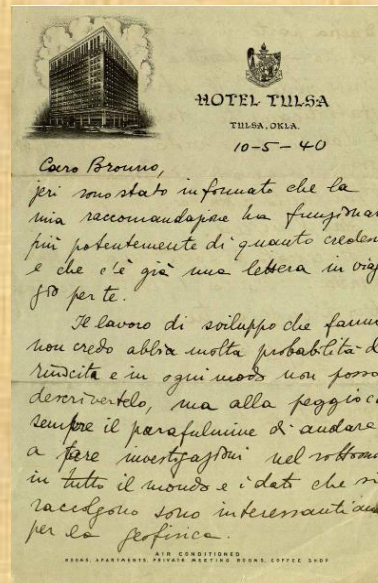 HOTEL TULSA
TULSA, OKLA.
10-5-40
Caro Bronno,
jeri sono stato informato che la
mia raccomandazione ha funzionat
più potentemente di quanto credess
e che c'è già una lettera in viag
gio per te.
Il lavoro di sviluppo che fanno
non credo abbia molta probabilità d
riuscita e in ogni modo non posso
descrivertelo, ma alla peggio c'
sempre il parafulmine di andare
a fare investigazioni nel
in tutto il mondo e i dati che si
raccolgono sono interessanti anc
per la geofisica.
AIR CONDITIONED
ROOMS, APARTMENTS, PRIVATE MEETING ROOMS, COFFEE SHOP